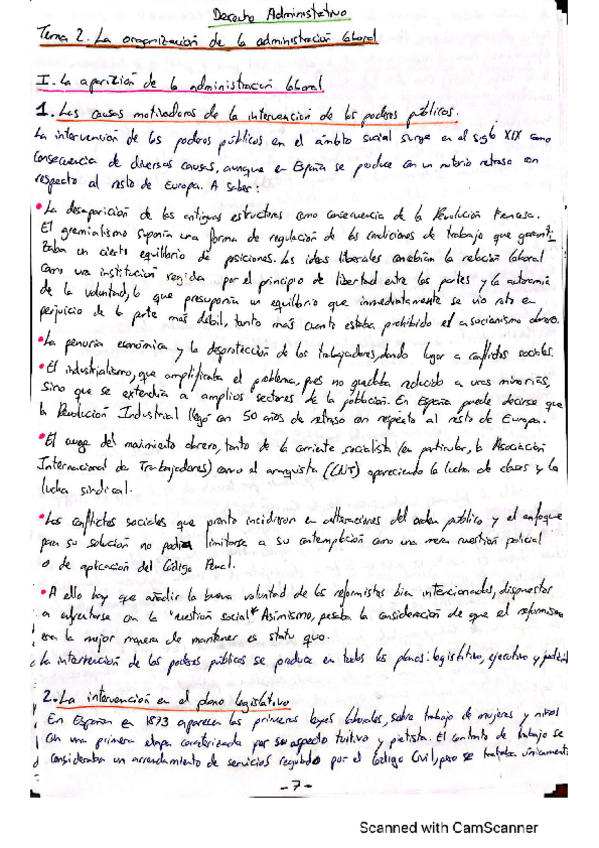 Derecho Administrativo
Tema 2. La organización de la administración laboral
I. La aparición de la administración laboral
1. Las causas motivadoras de la intervención de los poderes públicos.
La intervención de los poderes públicos en el ámbito social surge en el siglo XIX como
consecuencia de diversas causas, aunque en España se produce con un notorio retraso con
respecto al resto de Europa. A saber:
• La desaparición de las antiguas estructuras como consecuencia de la Revolución Francesa.
El gremialismo suponía una forma de regulación de las condiciones de trabajo que garanti-
zaba un cierto equilibrio de posiciones. Las ideas liberales concebían la relación laboral
como una institución regida por el principio de libertad entre las partes y la autonomía
de la voluntad, lo que presuponía un equilibrio que inmediatamente se vio roto en
perjuicio de la parte más débil, tanto más cuanto estaba prohibido el asocianismo obrero.
• La penuria económica y la desprotección de los trabajadores, dando lugar a conflictos sociales.
• El industrialismo, que amplificaba el problema, pues no quedaba reducido a unas minorías,
sino que se extendía a amplios sectores de la población. En España puede decirse que
la Revolución Industrial llegó con 50 años de retraso con respecto al resto de Europa.
• El auge del movimiento obrero, tanto de la corriente socialista (en particular, la Asociación
Internacional de Trabajadores) como el anarquista (CNT) apareciendo la lucha de clases y la
lucha sindical.
• Los conflictos sociales que pronto incidieron en alteraciones del orden público y el enfoque
para su solución no podía limitarse a su contemplación como una mera cuestión policial
o de aplicación del Código Penal.
• A ello hay que añadir la buena voluntad de los reformistas bien intencionados, dispuestos
a enfrentarse con la "cuestión social". Asimismo, pesaba la consideración de que el reformismo
era la mejor manera de mantener es statu quo.
La intervención de los poderes públicos se produce en todos los planos: legislativo, ejecutivo y judicial
2. La intervención en el plano legislativo
En España en 1873 aparecen las primeras leyes laborales, sobre trabajo de mujeres y niños
con una primera etapa caracterizada por su aspecto tuitivo y pietista. El contrato de trabajo se
consideraba un arrendamiento de servicios regulado por el Código Civil, pero se trataba únicamente
-7-
Scanned with CamScanner